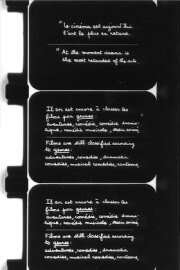 "le cinéma est aujourd'hui
l'art le plus en retard.
"At the moment cinema is
the most retarded of the arts
Il en est encore à classer les
films par genres:
aventures, comédie, comédie drama-
tique, comédie musicale, dessin animé
Films are still classified according
to genres:
adventures, comedies, dramatic
comedies, musical comedies, cartoons
Il en est encore à classer les
films par genres:
aventures, comédie, comédie drama-
tique, comédie musicale, dessin animé
Films are still classified according
to genres:
adventures, comedies, dramatic
comedies, musical comedies, cartoons